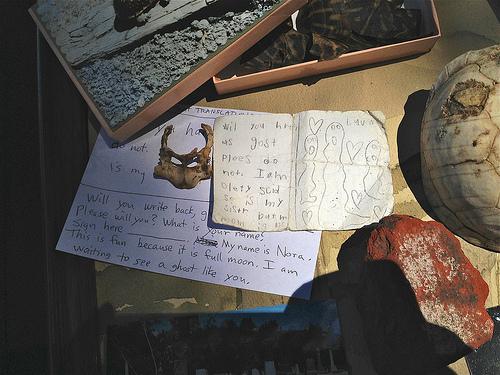 TRANSLATION
I ha
do not.
is my
Will you write back, g
Please will you? What is your name?
Sign here My name is Nora.
This is fun because it is full moon. I am
waiting to see a ghost like you.
wil you
as gost
plees do
not. I am
so is my